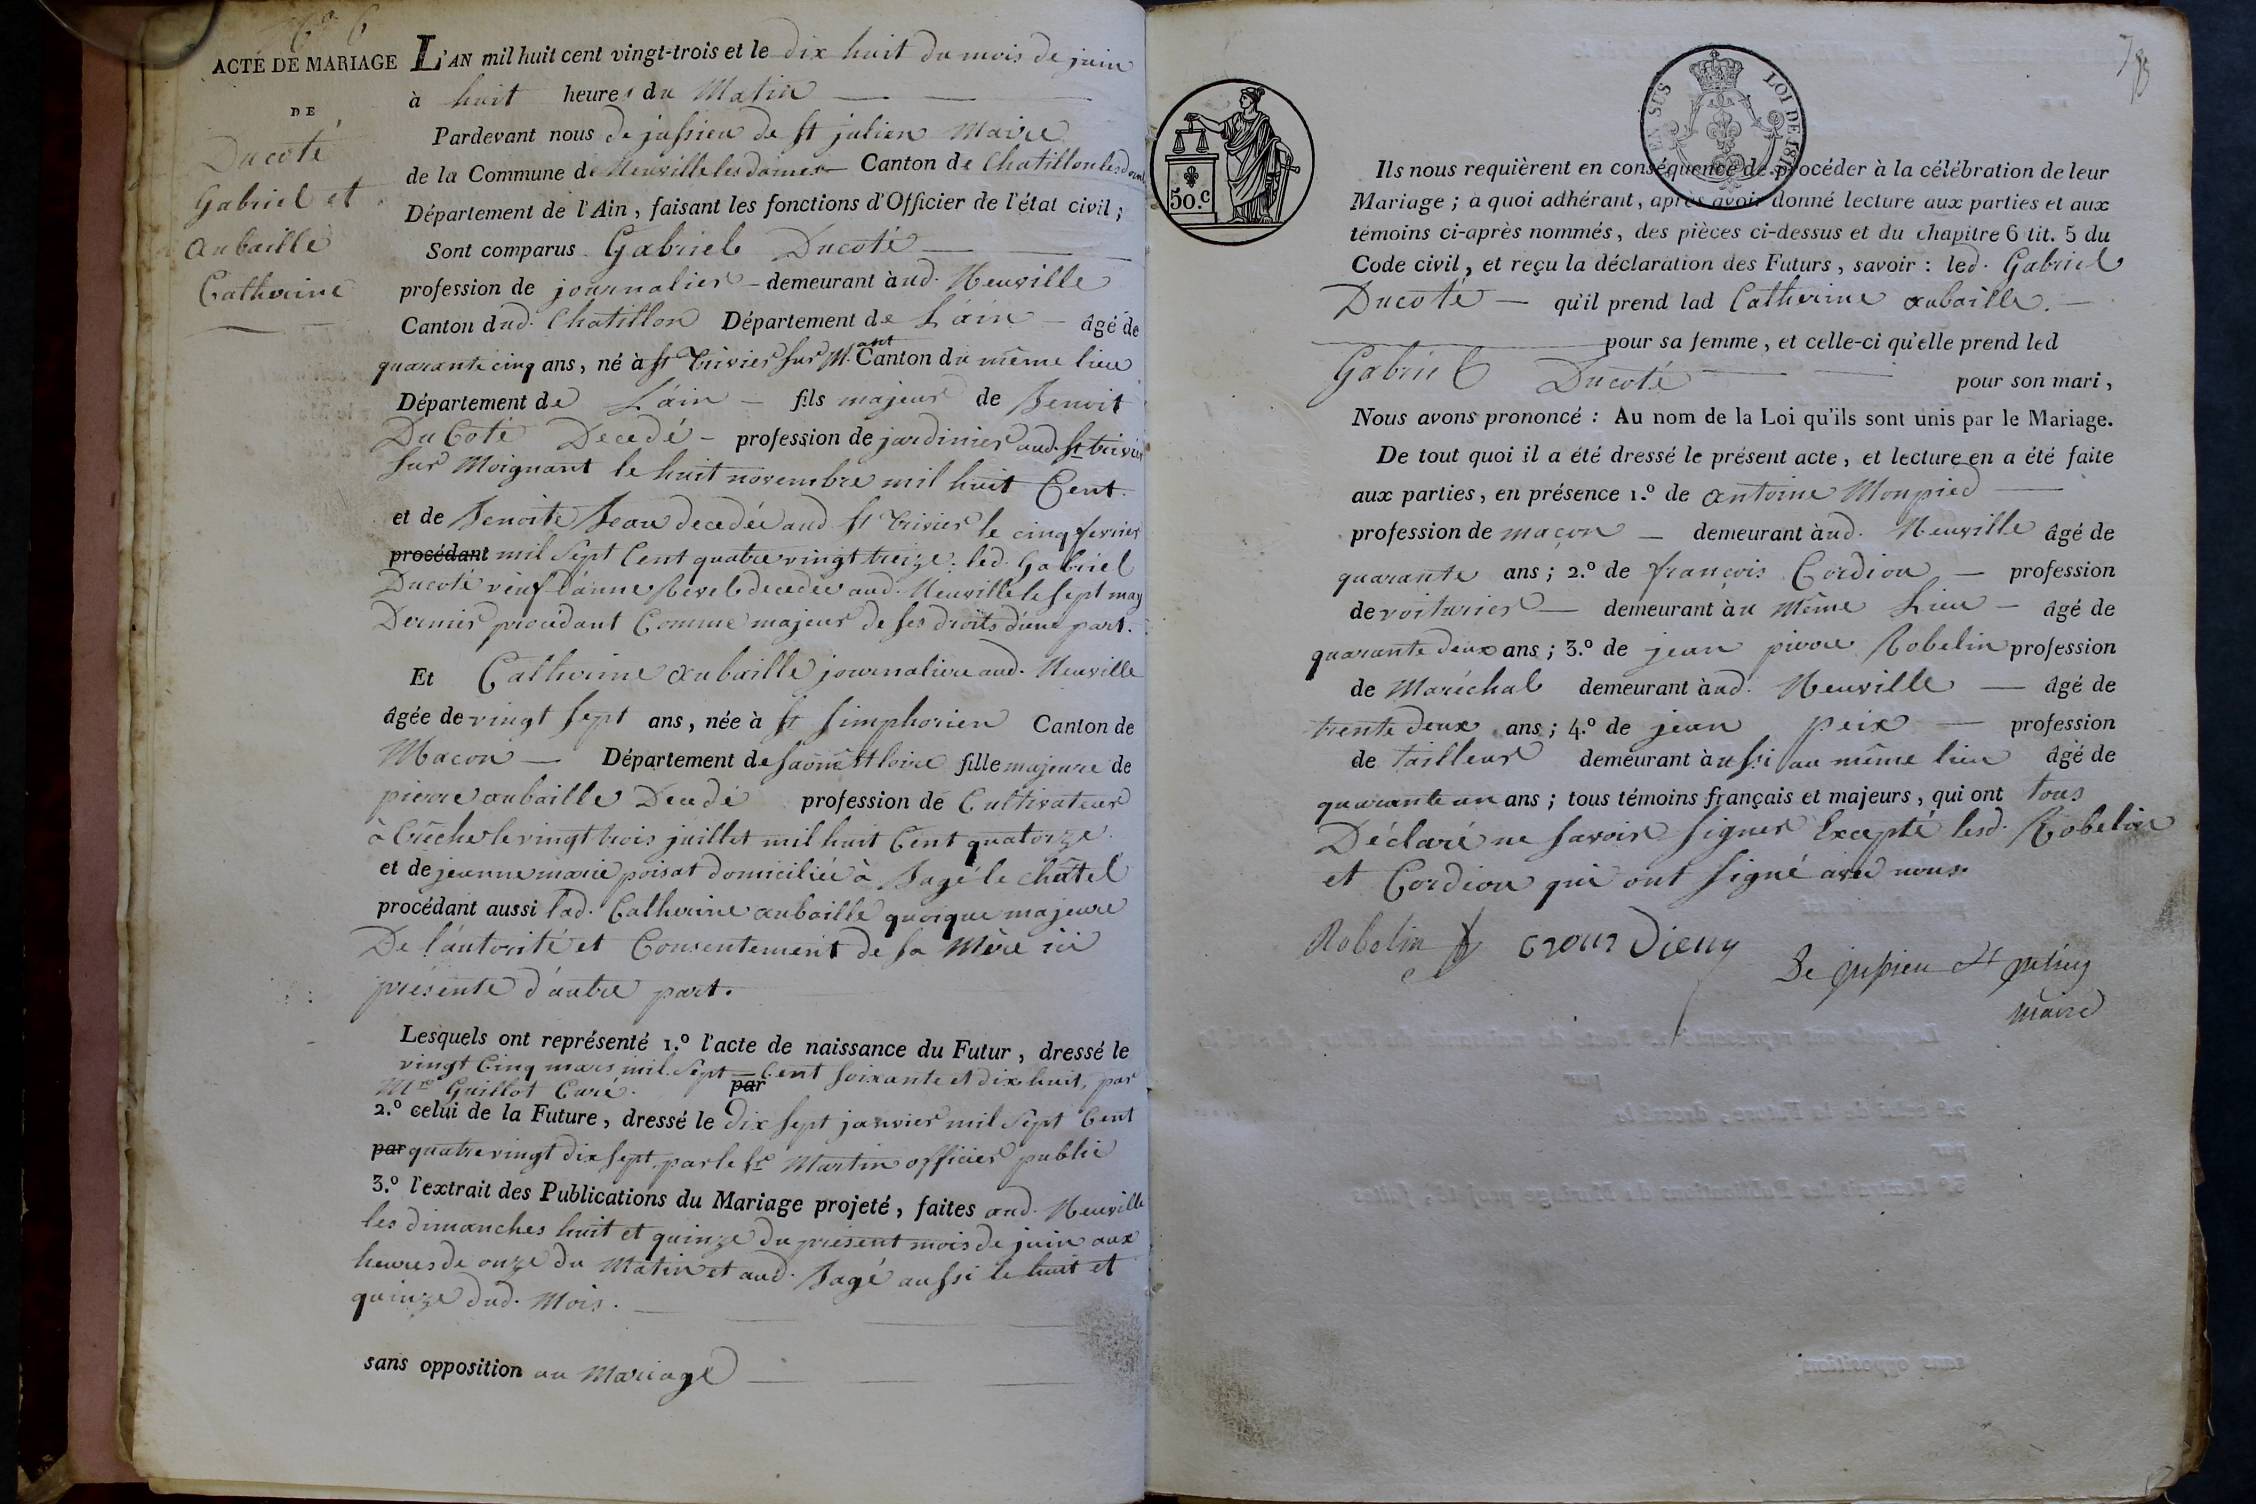 N.o 6
ACTE DE MARIAGE
DE
Ducoté
Gabriel et
aubaille
Catherine
L'AN mil huit cent vingt-trois et le dix huit du mois de juin
à huit heures du Matin
Pardevant nous de jussieu de st julien Maire
de la Commune de Neuville les dames Canton de Chatillon les dombes
Département de l'Ain, faisant les fonctions d'Officier de l'état civil;
Sont comparus Gabriel Ducoté
profession de journalier demeurant àud. Neuville
Canton dud. Chatillon Département de L'ain âgé de
quarante cinq ans, né à st trivier sur M.ant Canton du même lieu
Département de L'ain fils majeur de Benoit
DuCoté Decedé profession de jardinier aud. st trivier
sur Moignant le huit novembre mil huit Cent.
et de Benoite Beau decedée aud st trivier le cinq fevrier
procédant mil sept Cent quatre vingt treize. led. Gabriel
Ducoté veuf d'anne Revel decedée aud. Neuville le sept may
Dernier procédant Comme majeur de ses droits d'une part.
Et Catherine aubaille journaliere aud. Neuville
âgée de vingt sept ans, née à st simphorien Canton de
Macon Département de saône et loire fille majeure de
pierre aubaille Decedé profession de Cultivateur
à Crêche le vingt trois juillet mil huit Cent quatorze.
et de jeanne marie poisat domiciliée à Bagé le châtel
procédant aussi lad. Catherine aubaille quoique majeure
De l'autorité et Consentement de sa Mère ici
présente d'autre part.
Lesquels ont représenté 1.º l'acte de naissance du Futur, dressé le
vingt Cinq mars mil sept Cent soixante et dix huit, par
par
Mre Guillot Curé.
2.º celui de la Future, dressé le dix sept janvier mil sept Cent
par quatre vingt dix sept par le sr Martin officier public
3.º l'extrait des Publications du Mariage projeté, faites aud. Neuville
les dimanches huit et quinze du présent mois de juin aux
heures de onze du Matin et aud. Bagé aussi le huit et
quinze dud. Mois.
sans opposition au Mariage
78
50.C
EN SUS
LOI DE 181
Ils nous requièrent en conséquence de procéder à la célébration de leur
Mariage; à quoi adhérant, après avoir donné lecture aux parties et aux
témoins ci-après nommés, des pièces ci-dessus et du chapitre 6 tit. 5 du
Code civil, et reçu la déclaration des Futurs, savoir: led. Gabriel
Ducoté qu'il prend lad Catherine aubaille.
pour sa femme, et celle-ci qu'elle prend led
Gabriel Ducoté pour son mari,
Nous avons prononcé: Au nom de la Loi qu'ils sont unis par le Mariage.
De tout quoi il a été dressé le présent acte, et lecture en a été faite
aux parties, en présence 1.º de antoine Monpied
profession de maçon demeurant àud. Neuville âgé de
quarante ans; 2.º de françois Cordion profession
de voiturier demeurant àu même Lieu âgé de
quarante deux ans; 3.º de jean pierre Robelin profession
de Maréchal demeurant àud. Neuville âgé de
trente deux ans; 4.º de jean peix profession
de tailleur demeurant àussi au même lieu âgé de
quarante un ans; tous témoins français et majeurs, qui ont tous
Déclaré ne savoir signer Excepté lesd. Robelin
et Cordion qui ont signé avec nous.
Robelin
De jussieu St julien
maire